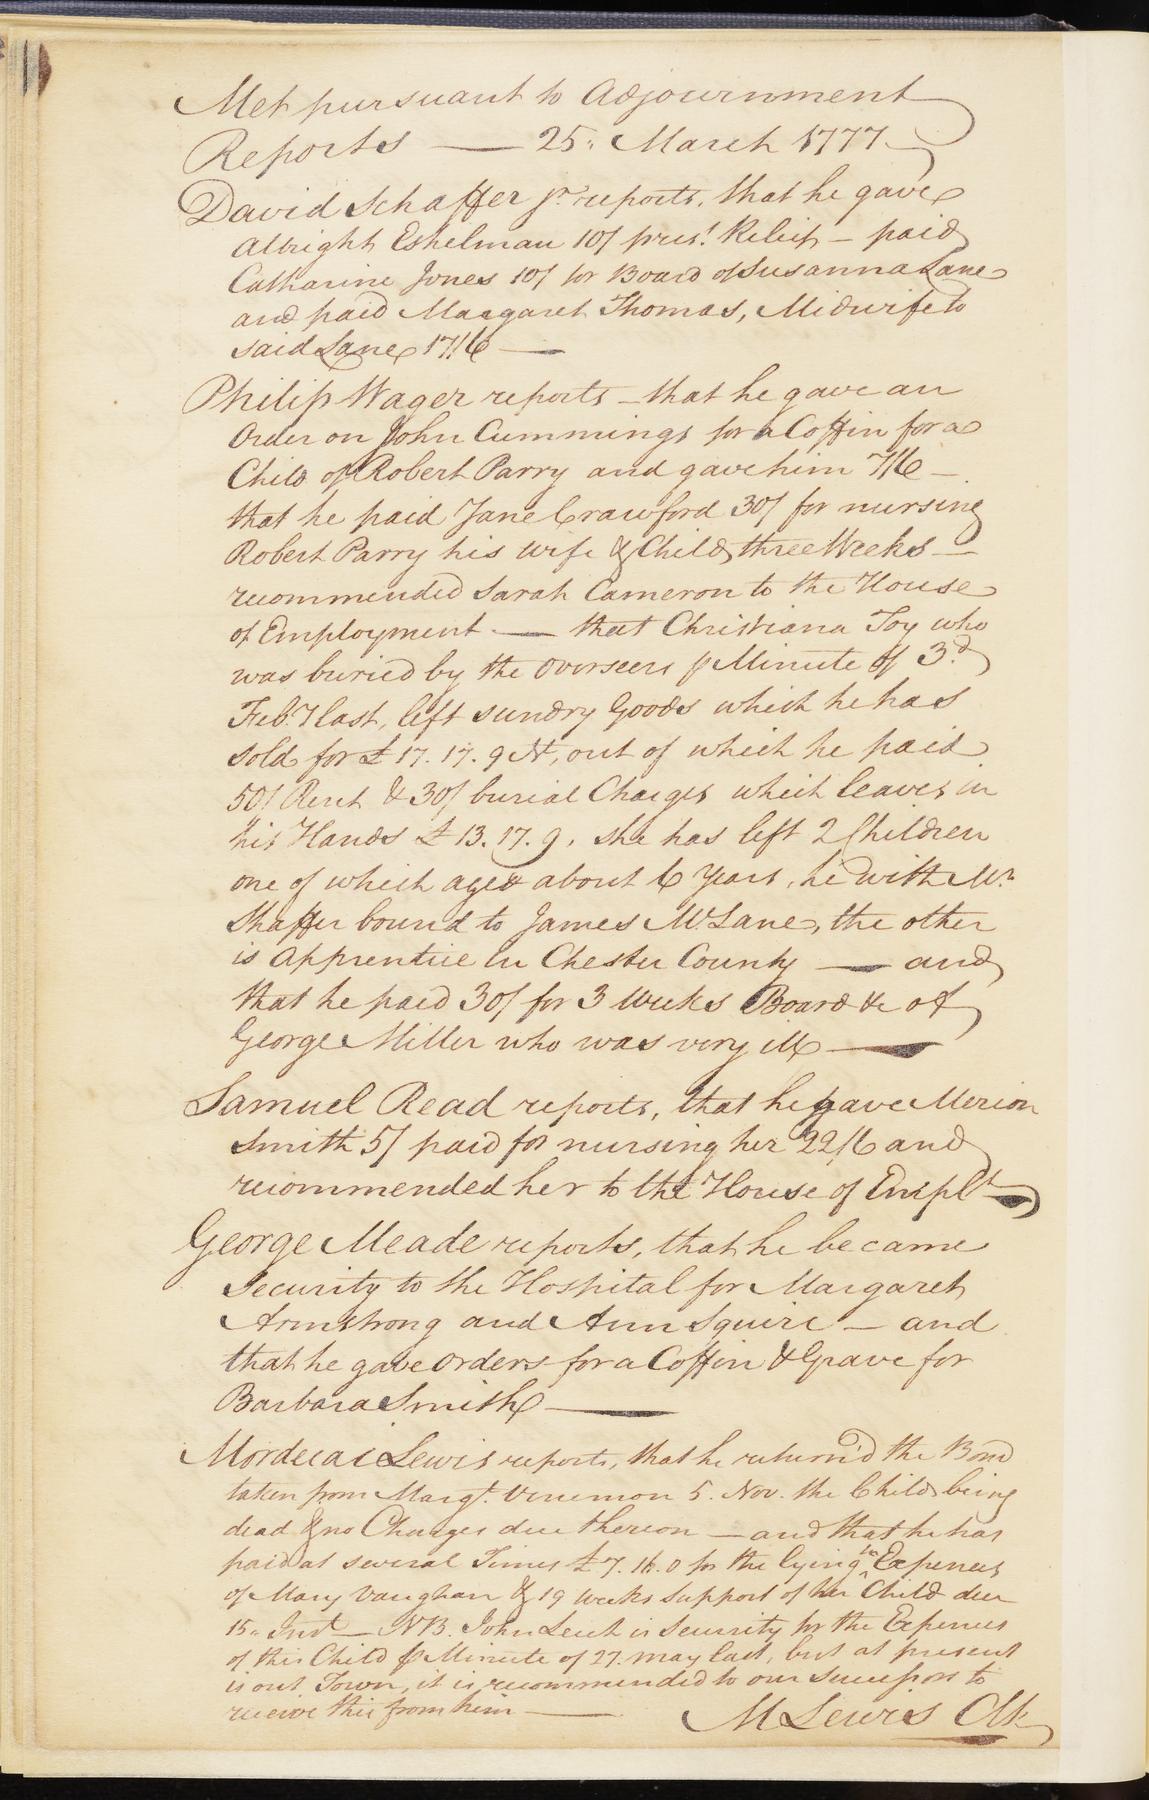 Met pursuant to Adjournment
Reports — 25. March 1777
David Schaffer Jr. reports, that he gave
Albright Eshelman 10/ pres.t Relief — paid
Catharine Jones 10/ for Board of Susanna Lane
and paid Margaret Thomas, Midwife to
said Lane 17/6 —
Philip Wager reports — that he gave an
Order on John Cummings for a Coffin for a
Child of Robert Parry and gave him 7/6 —
that he paid Jane Crawford 30/ for nursing
Robert Parry his wife & Child three Weeks —
recommended Sarah Cameron to the House
of Employment — that Christiana Toy who
was buried by the Overseers p Minute of 3.d
Feb.y last, left sundry Goods which he has
sold for £ 17. 17. 9 Nt, out of which he paid
50/ Rent & 30/ burial Charges which leaves in
his Hands £ 13. 17. 9, she has left 2 Children
one of which aged about 6 Years, he with Mr.
Shaffer bound to James McLane, the other
is Apprentice in Chester County — and
that he paid 30/ for 3 Weeks Board &c of
George Miller who was very ill —
Samuel Read reports, that he gave Merion
Smith 5/ paid for nursing her 22/6 and
recommended her to the House of Emplt
George Meade reports, that he became
Security to the Hospital for Margaret
Armstrong and Ann Squire — and
that he gave orders for a Coffin & Grave for
Barbara Smith —
Mordecai Lewis reports, that he return'd the Bond
taken from Margt. Venemon 5. Nov. the Child being
dead & no Charges due thereon — and that he has
paid at several Times £ 7. 16. 0 for the lying in Expences
of Mary Vaughan & 19 weeks support of her Child due
15. Inst — NB. John Leech is Security for the Expences
of this Child p Minute of 27. may last, but at present
is out Town, it is recommended to our Successors to
receive this from him —
M Lewis Clk